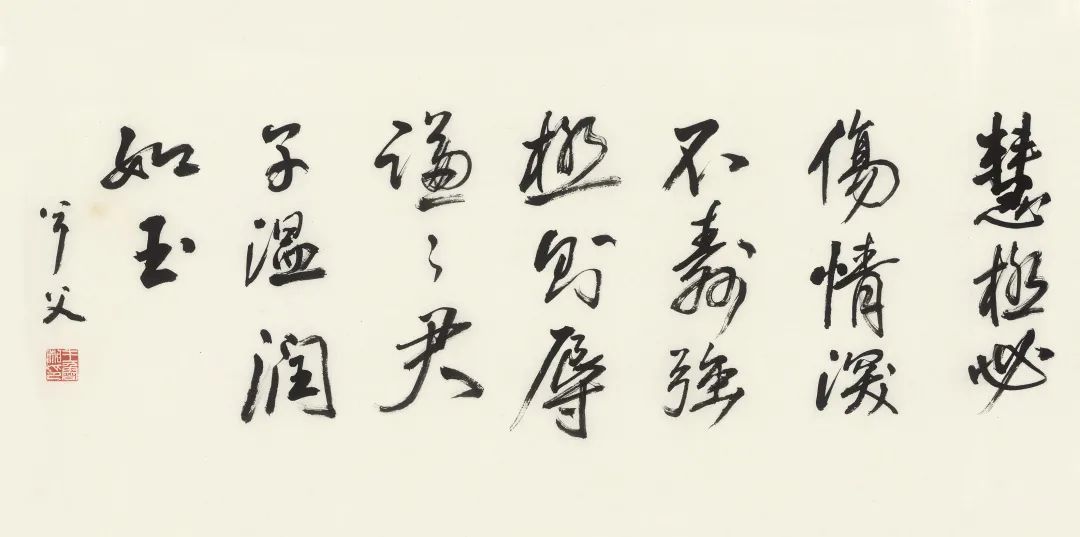 慧極必
傷情深
不壽強
極則辱
謙〻君
子温潤
如玉
父